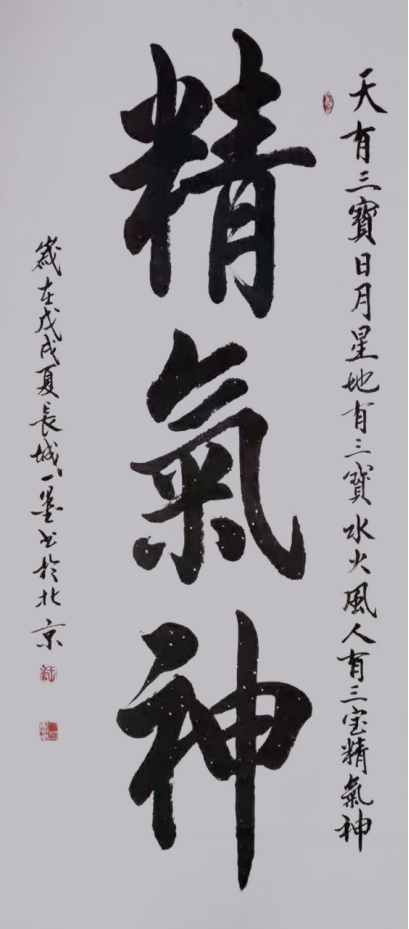 天有三寶日月星地有三寶水火風人有三宝精氣神
精氣神
歲在戊戌夏長城一墨书於北京